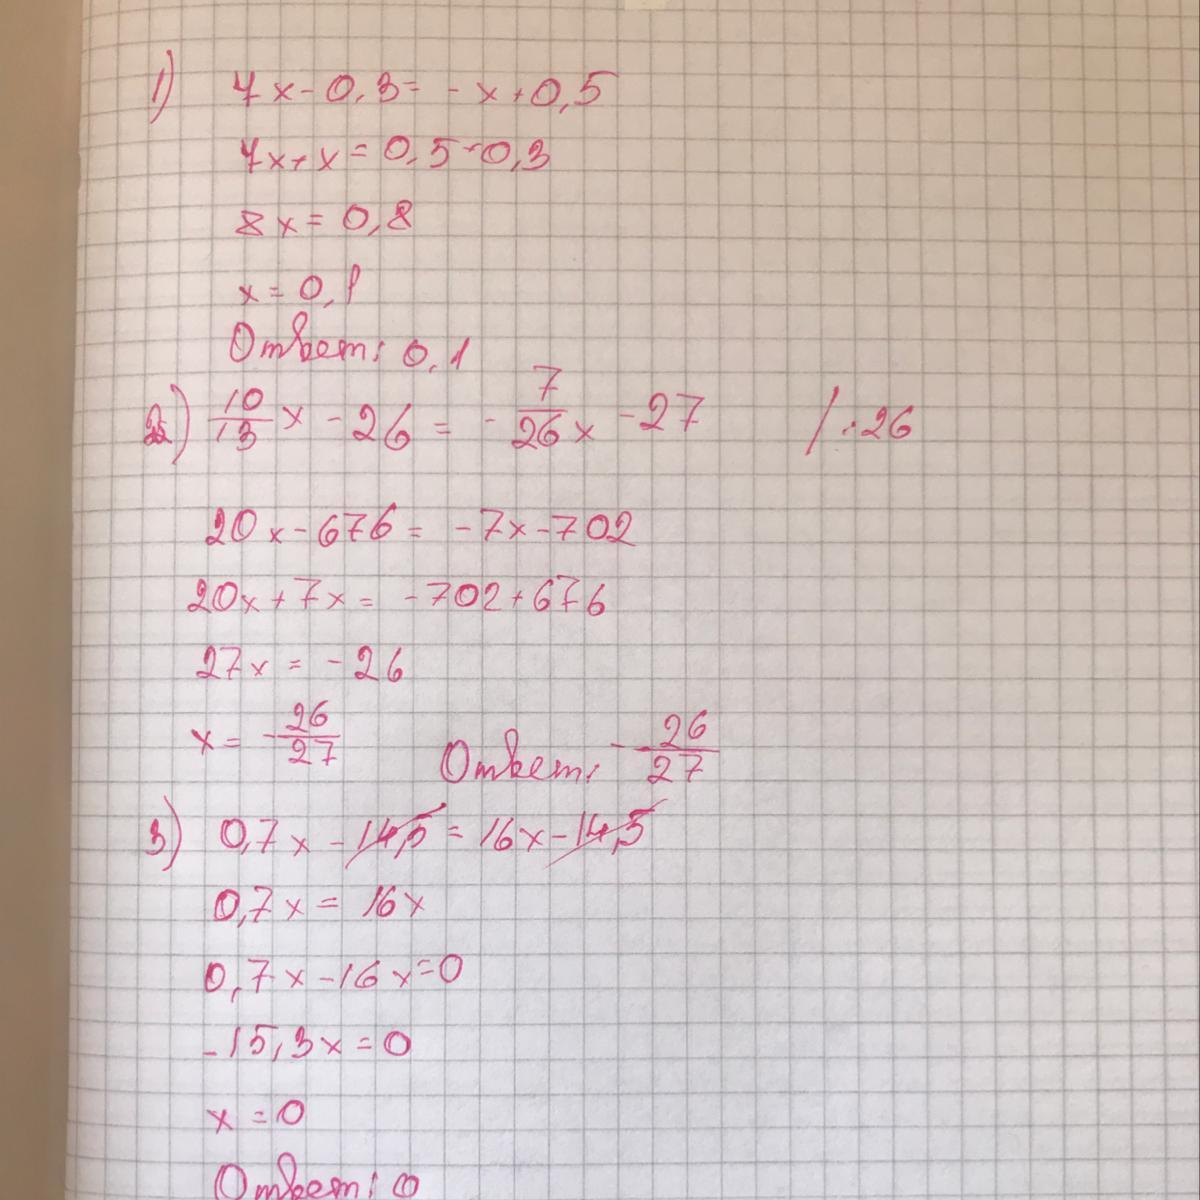 1) 7x - 0,3 = - x + 0,5
7x + x = 0,5 + 0,3
8x = 0,8
x = 0,1
Ответ: 0,1
2) 10/13 x - 26 = - 7/26 x - 27 / · 26
20x - 676 = - 7x - 702
20x + 7x = - 702 + 676
27x = - 26
x = - 26/27 Ответ: - 26/27
3) 0,7x - 14,5 = 16x - 14,5
0,7x = 16x
0,7x - 16x = 0
- 15,3x = 0
x = 0
Ответ: 0